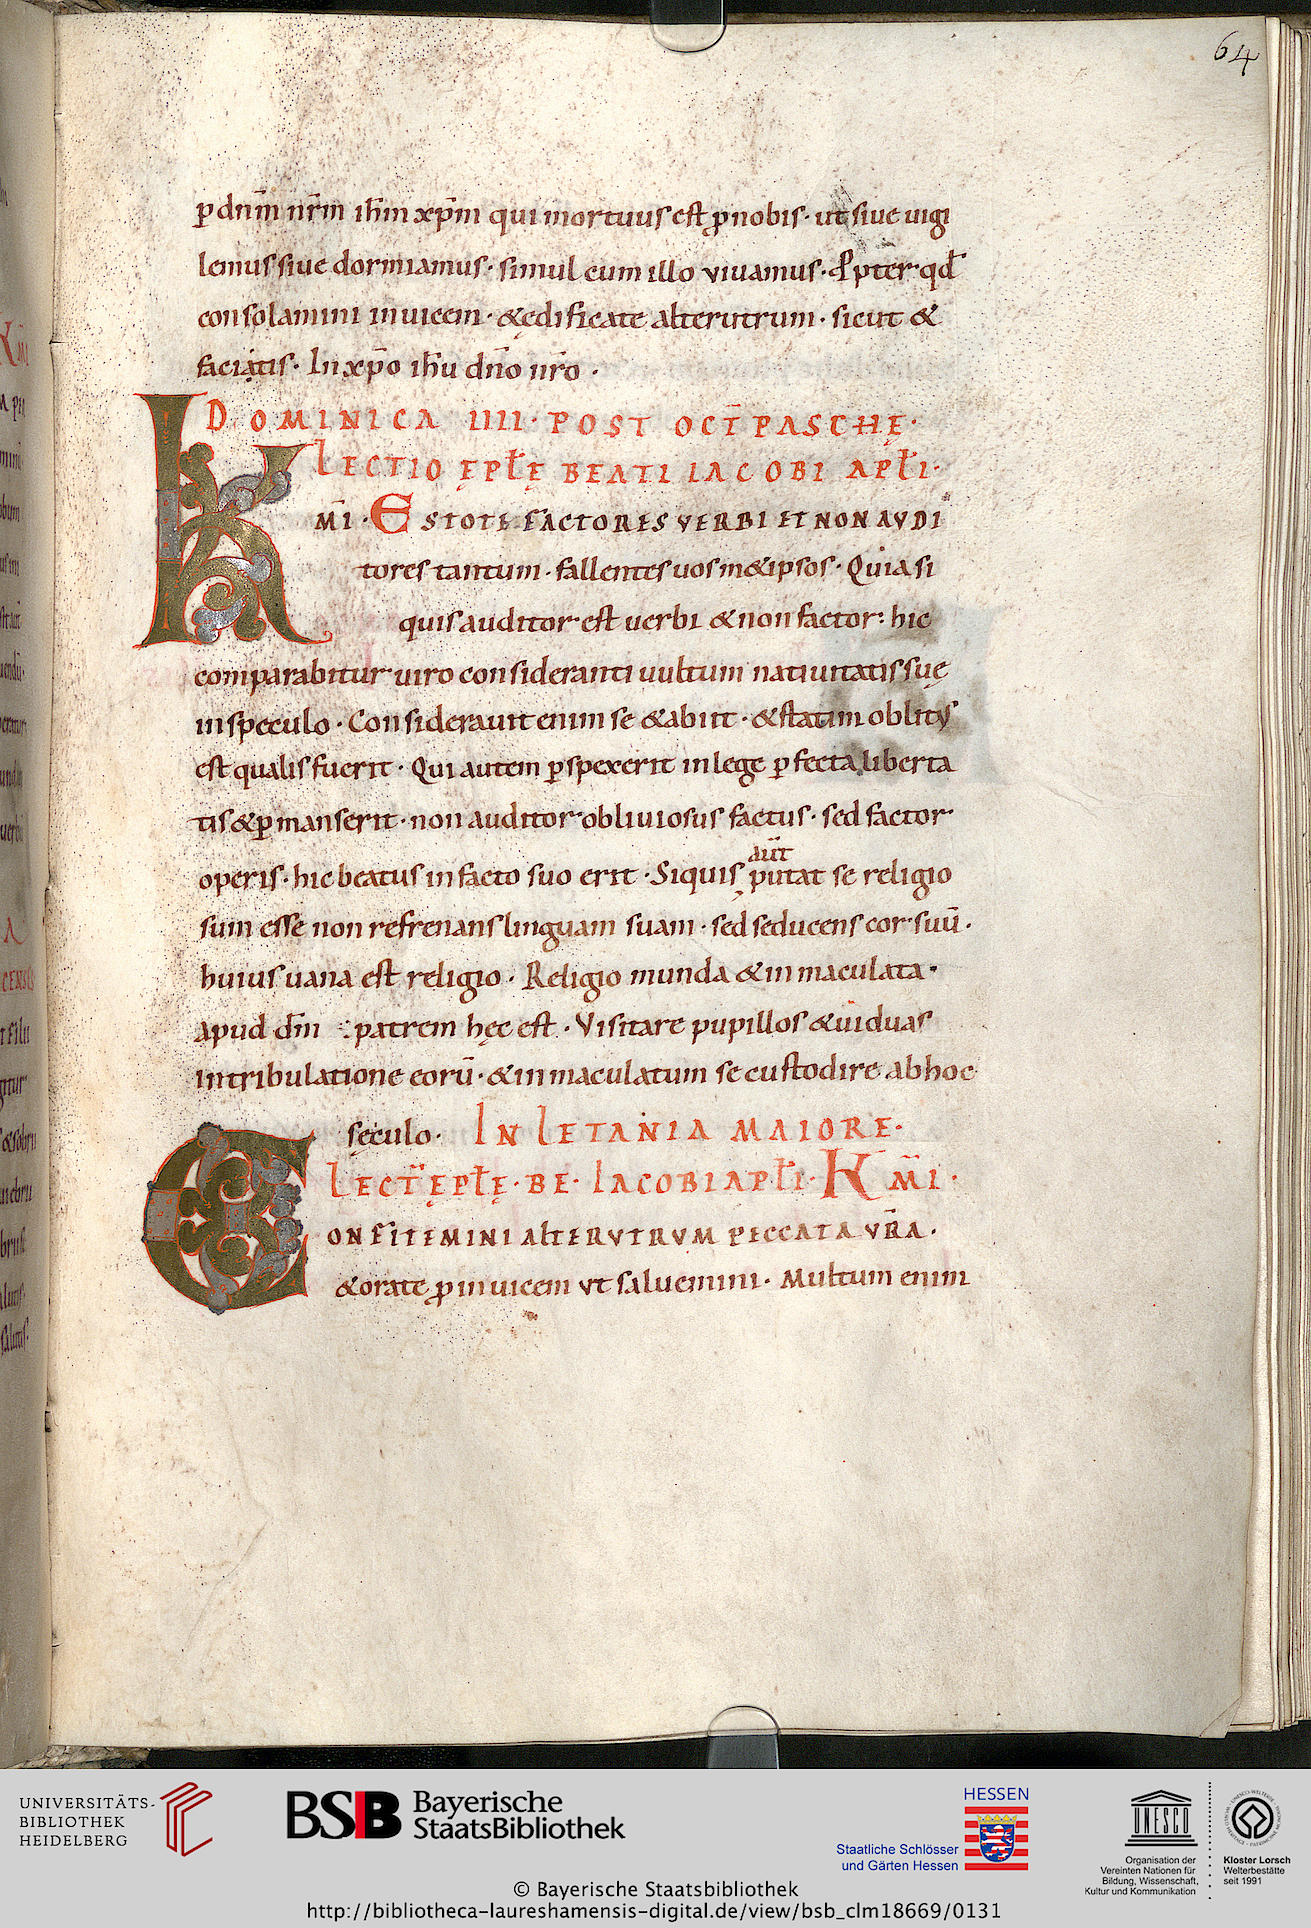 64
p dnm̄ nrm̄ ihm̄ xpm̄ qui mortuus est ꝓ nobis· ut siue uigi
lemus siue dormiamus· simul cum illo viuamus· Ꝓpter qđ
consolamini inuicem· & ędificate alterutrum· sicut &
faciatis· In xp̄o ihū dn̄o nr̄o·
DOMINICA IIII· POST OCT̄ PASCHĘ·
LECTIO ĘPL̄Ę BEATI IACOBI APL̄I·
K
M̄I· ESTOTE FACTORES VERBI ET NON AVDI
tores tantum· fallentes uosm&ipsos· Quia si
quis auditor est uerbi & non factor: hic
comparabitur uiro consideranti uultum natiuitatis suę
in speculo· Considerauit enim se & abiit· & statim oblitus
est qualis fuerit· Qui autem ꝑspexerit in lege ꝑfecta liberta
tis & ꝑmanserit· non auditor obliuiosus factus· sed factor
operis· hic beatus in facto suo erit· Siquis putat se religio
aut̄
sum esse non refrenans linguam suam· sed seducens cor suū·
huius uana est religio· Religio munda & inmaculata·
apud dm̄ patrem hęc est· Visitare pupillos & uiduas
in tribulatione eorū· & inmaculatum se custodire ab hoc
sęculo· IN LETANIA MAIORE·
LECT̄ ĘPL̄Ę· BE· IACOBI APL̄I· KM̄I·
C
ONFITEMINI ALTERVTRVM PECCATA VR̄A·
& orate ꝓ inuicem ut saluemini· Multum enim
UNIVERSITÄTS-
BIBLIOTHEK
HEIDELBERG
BSB Bayerische
StaatsBibliothek
HESSEN
Staatliche Schlösser
und Gärten Hessen
UNESCO
Organisation der
Vereinten Nationen für
Bildung, Wissenschaft,
Kultur und Kommunikation
Kloster Lorsch
Welterbestätte
seit 1991
© Bayerische Staatsbibliothek
http://bibliotheca-laureshamensis-digital.de/view/bsb_clm18669/0131